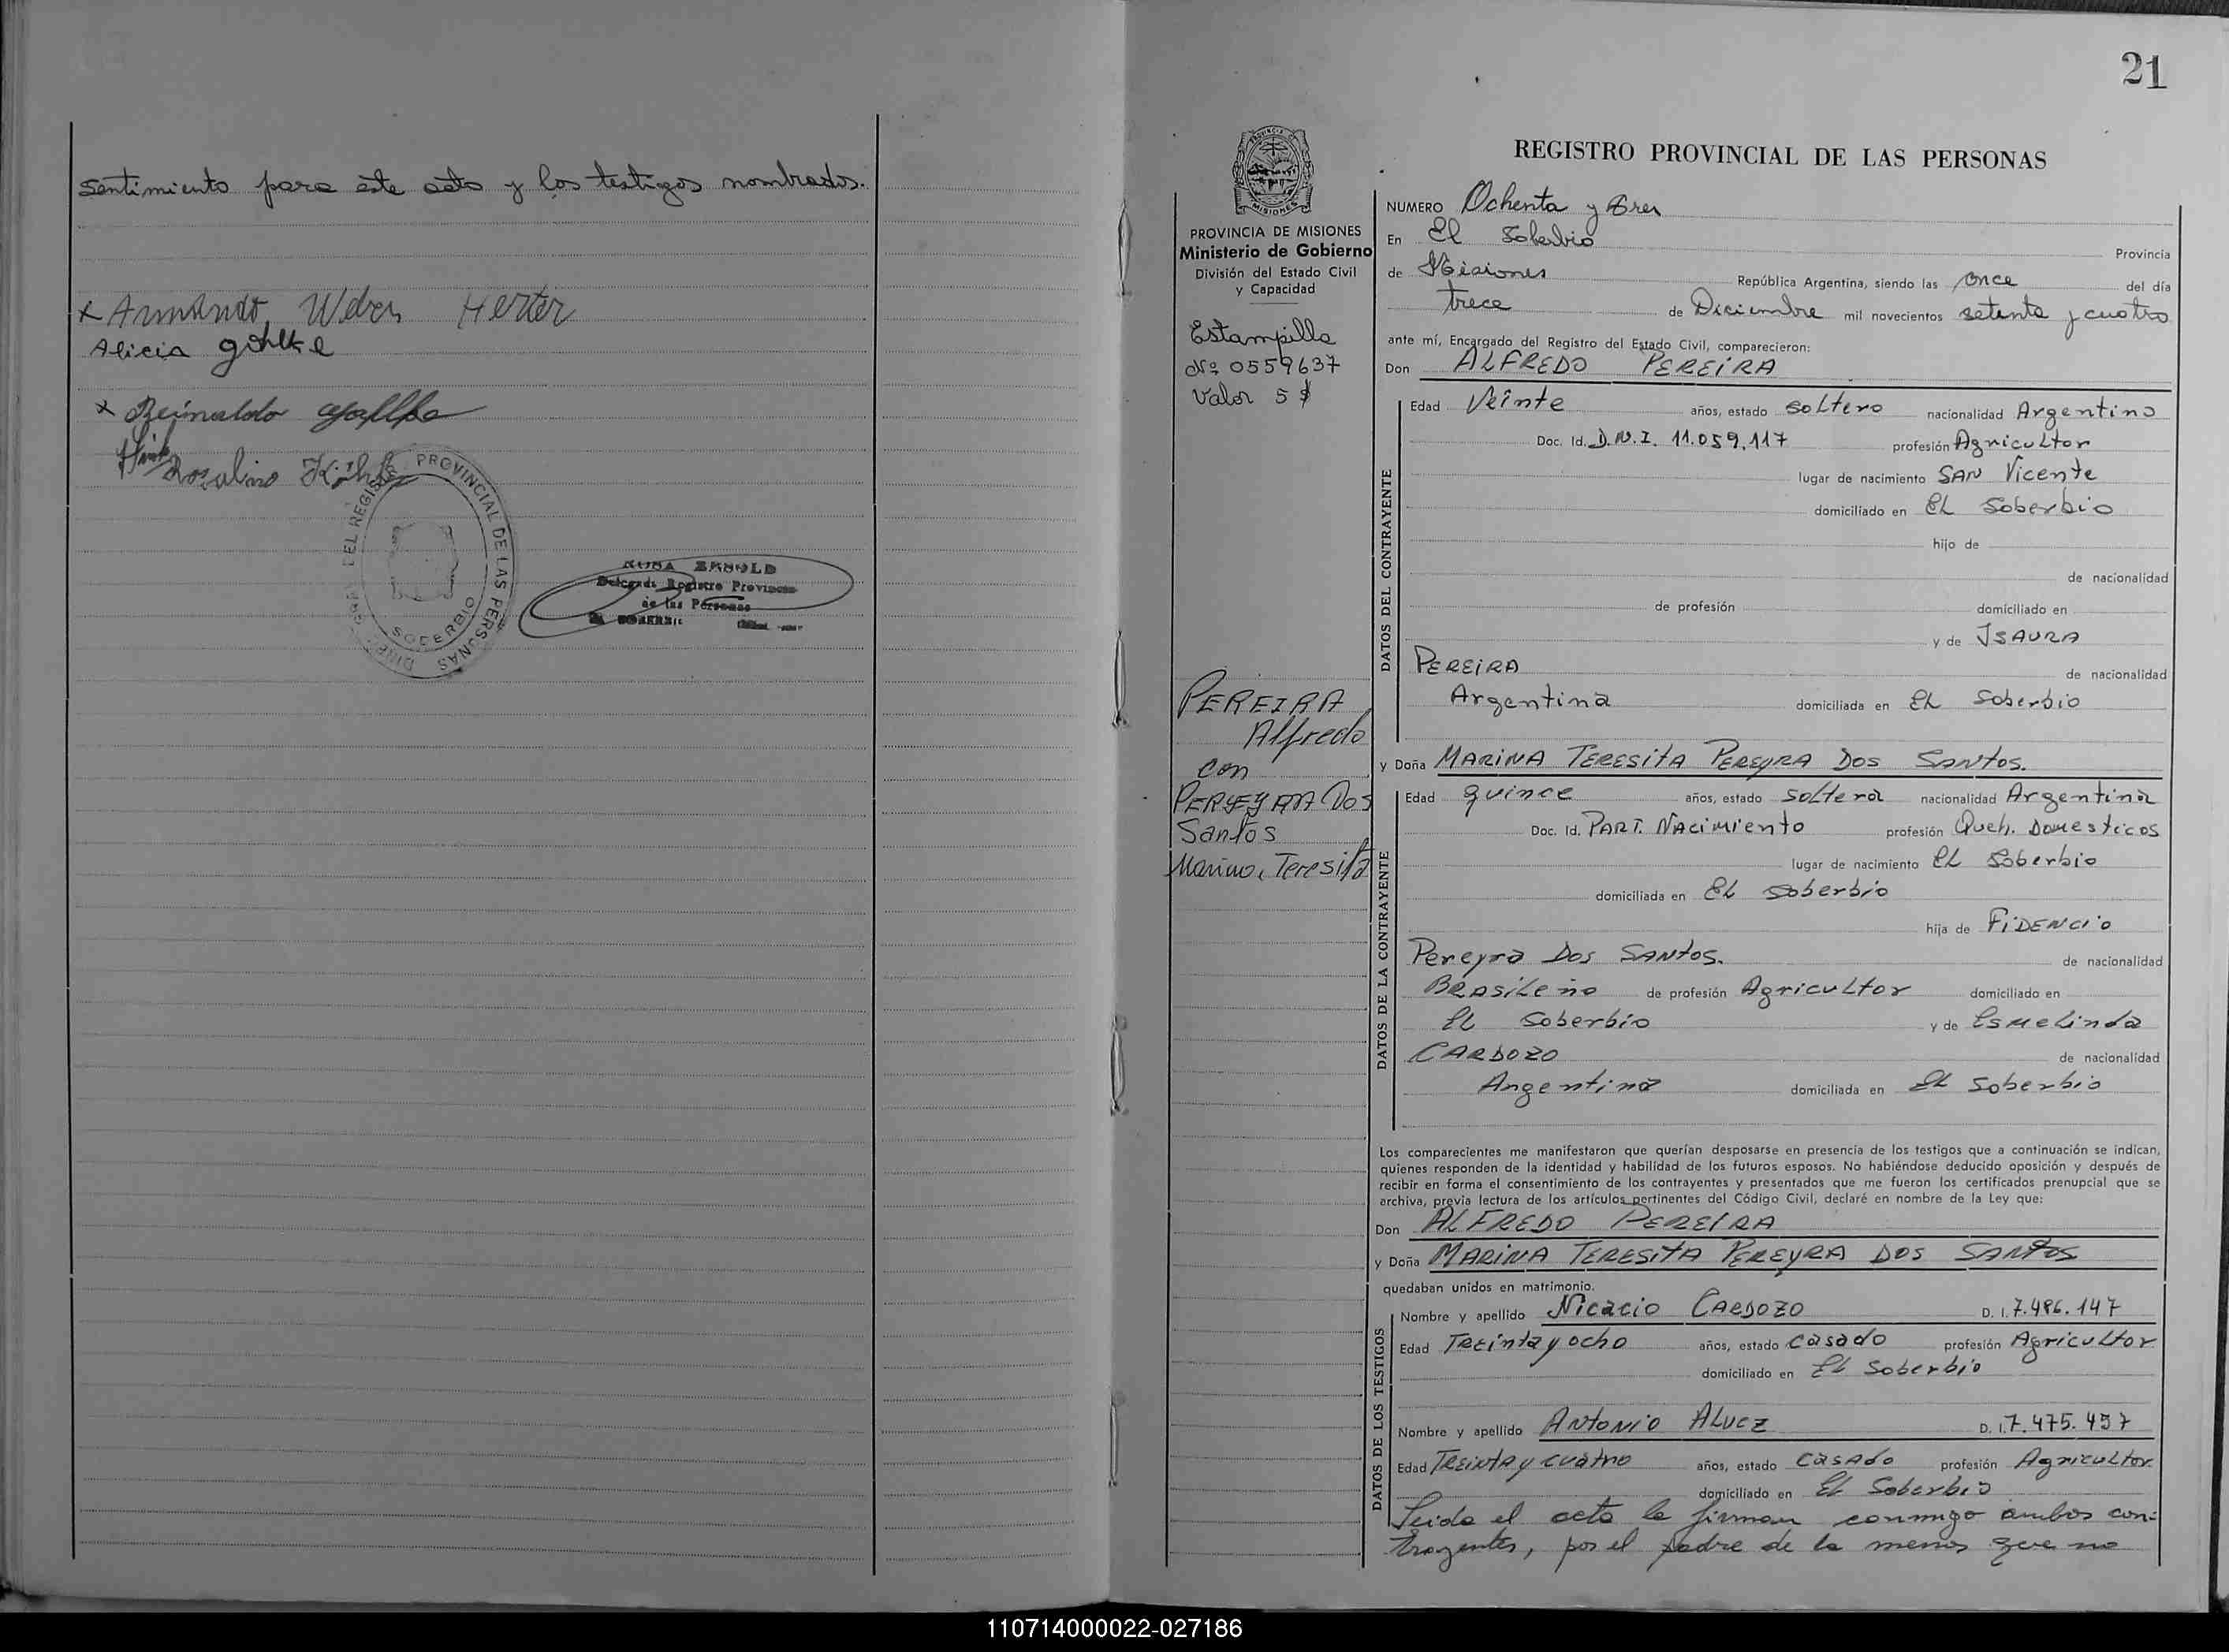 sentimiento para este acto y los testigos nombrados.
x Armando Weber Herter
Alicia
x Reinaldo
Rozalino
DEL REGISTRO PROVINCIAL DE LAS PERSONAS
SOBERBIO
Registro Provincial
de las Personas
21
REGISTRO PROVINCIAL DE LAS PERSONAS
PROVINCIA DE MISIONES
Ministerio de Gobierno
División del Estado Civil
y Capacidad
Estampilla
Nº 0559637
Valor 5 $
PEREIRA
Alfredo
con
Dos
Santos
Teresita
NUMERO Ochenta y tres
En El Soberbio Provincia
de Misiones República Argentina, siendo las once del día
trece de Diciembre mil novecientos setenta y cuatro
ante mí, Encargado del Registro del Estado Civil, comparecieron:
Don ALFREDO PEREIRA
DATOS DEL CONTRAYENTE
Edad Veinte años, estado soltero nacionalidad Argentino
Doc. Id. D.N.I. 11.059.117 profesión Agricultor
lugar de nacimiento SAN Vicente
domiciliado en EL Soberbio
hijo de
de nacionalidad
de profesión domiciliado en
y de ISAURA
PEREIRA de nacionalidad
Argentina domiciliada en EL Soberbio
y Doña MARINA TERESITA PEREYRA DOS SANTOS.
DATOS DE LA CONTRAYENTE
Edad quince años, estado soltera nacionalidad Argentina
Doc. Id. PART. NACIMIENTO profesión Queh. DOMESTICOS
lugar de nacimiento EL Soberbio
domiciliada en EL Soberbio
hija de FIDENCIO
Pereyra Dos SANTOS. de nacionalidad
BRASILEÑO de profesión Agricultor domiciliado en
EL Soberbio y de Esmelinda
CARDOZO de nacionalidad
Argentina domiciliada en EL Soberbio
Los comparecientes me manifestaron que querían desposarse en presencia de los testigos que a continuación se indican,
quienes responden de la identidad y habilidad de los futuros esposos. No habiéndose deducido oposición y después de
recibir en forma el consentimiento de los contrayentes y presentados que me fueron los certificados prenupcial que se
archiva, previa lectura de los artículos pertinentes del Código Civil, declaré en nombre de la Ley que:
Don ALFREDO PEREIRA
y Doña MARINA TERESITA PEREYRA DOS SANTOS
quedaban unidos en matrimonio.
DATOS DE LOS TESTIGOS
Nombre y apellido Nicacio CARDOZO D. I. 7.486.147
Edad Treinta y ocho años, estado casado profesión Agricultor
domiciliado en EL Soberbio
Nombre y apellido ANTONIO ALVEZ D. I. 7.475.457
Edad TREINTA y cuatro años, estado CASADO profesión Agricultor
domiciliado en El Soberbio
Leida el acta la firman conmigo ambos con-
trayentes, por el padre de la menor que no
110714000022-027186